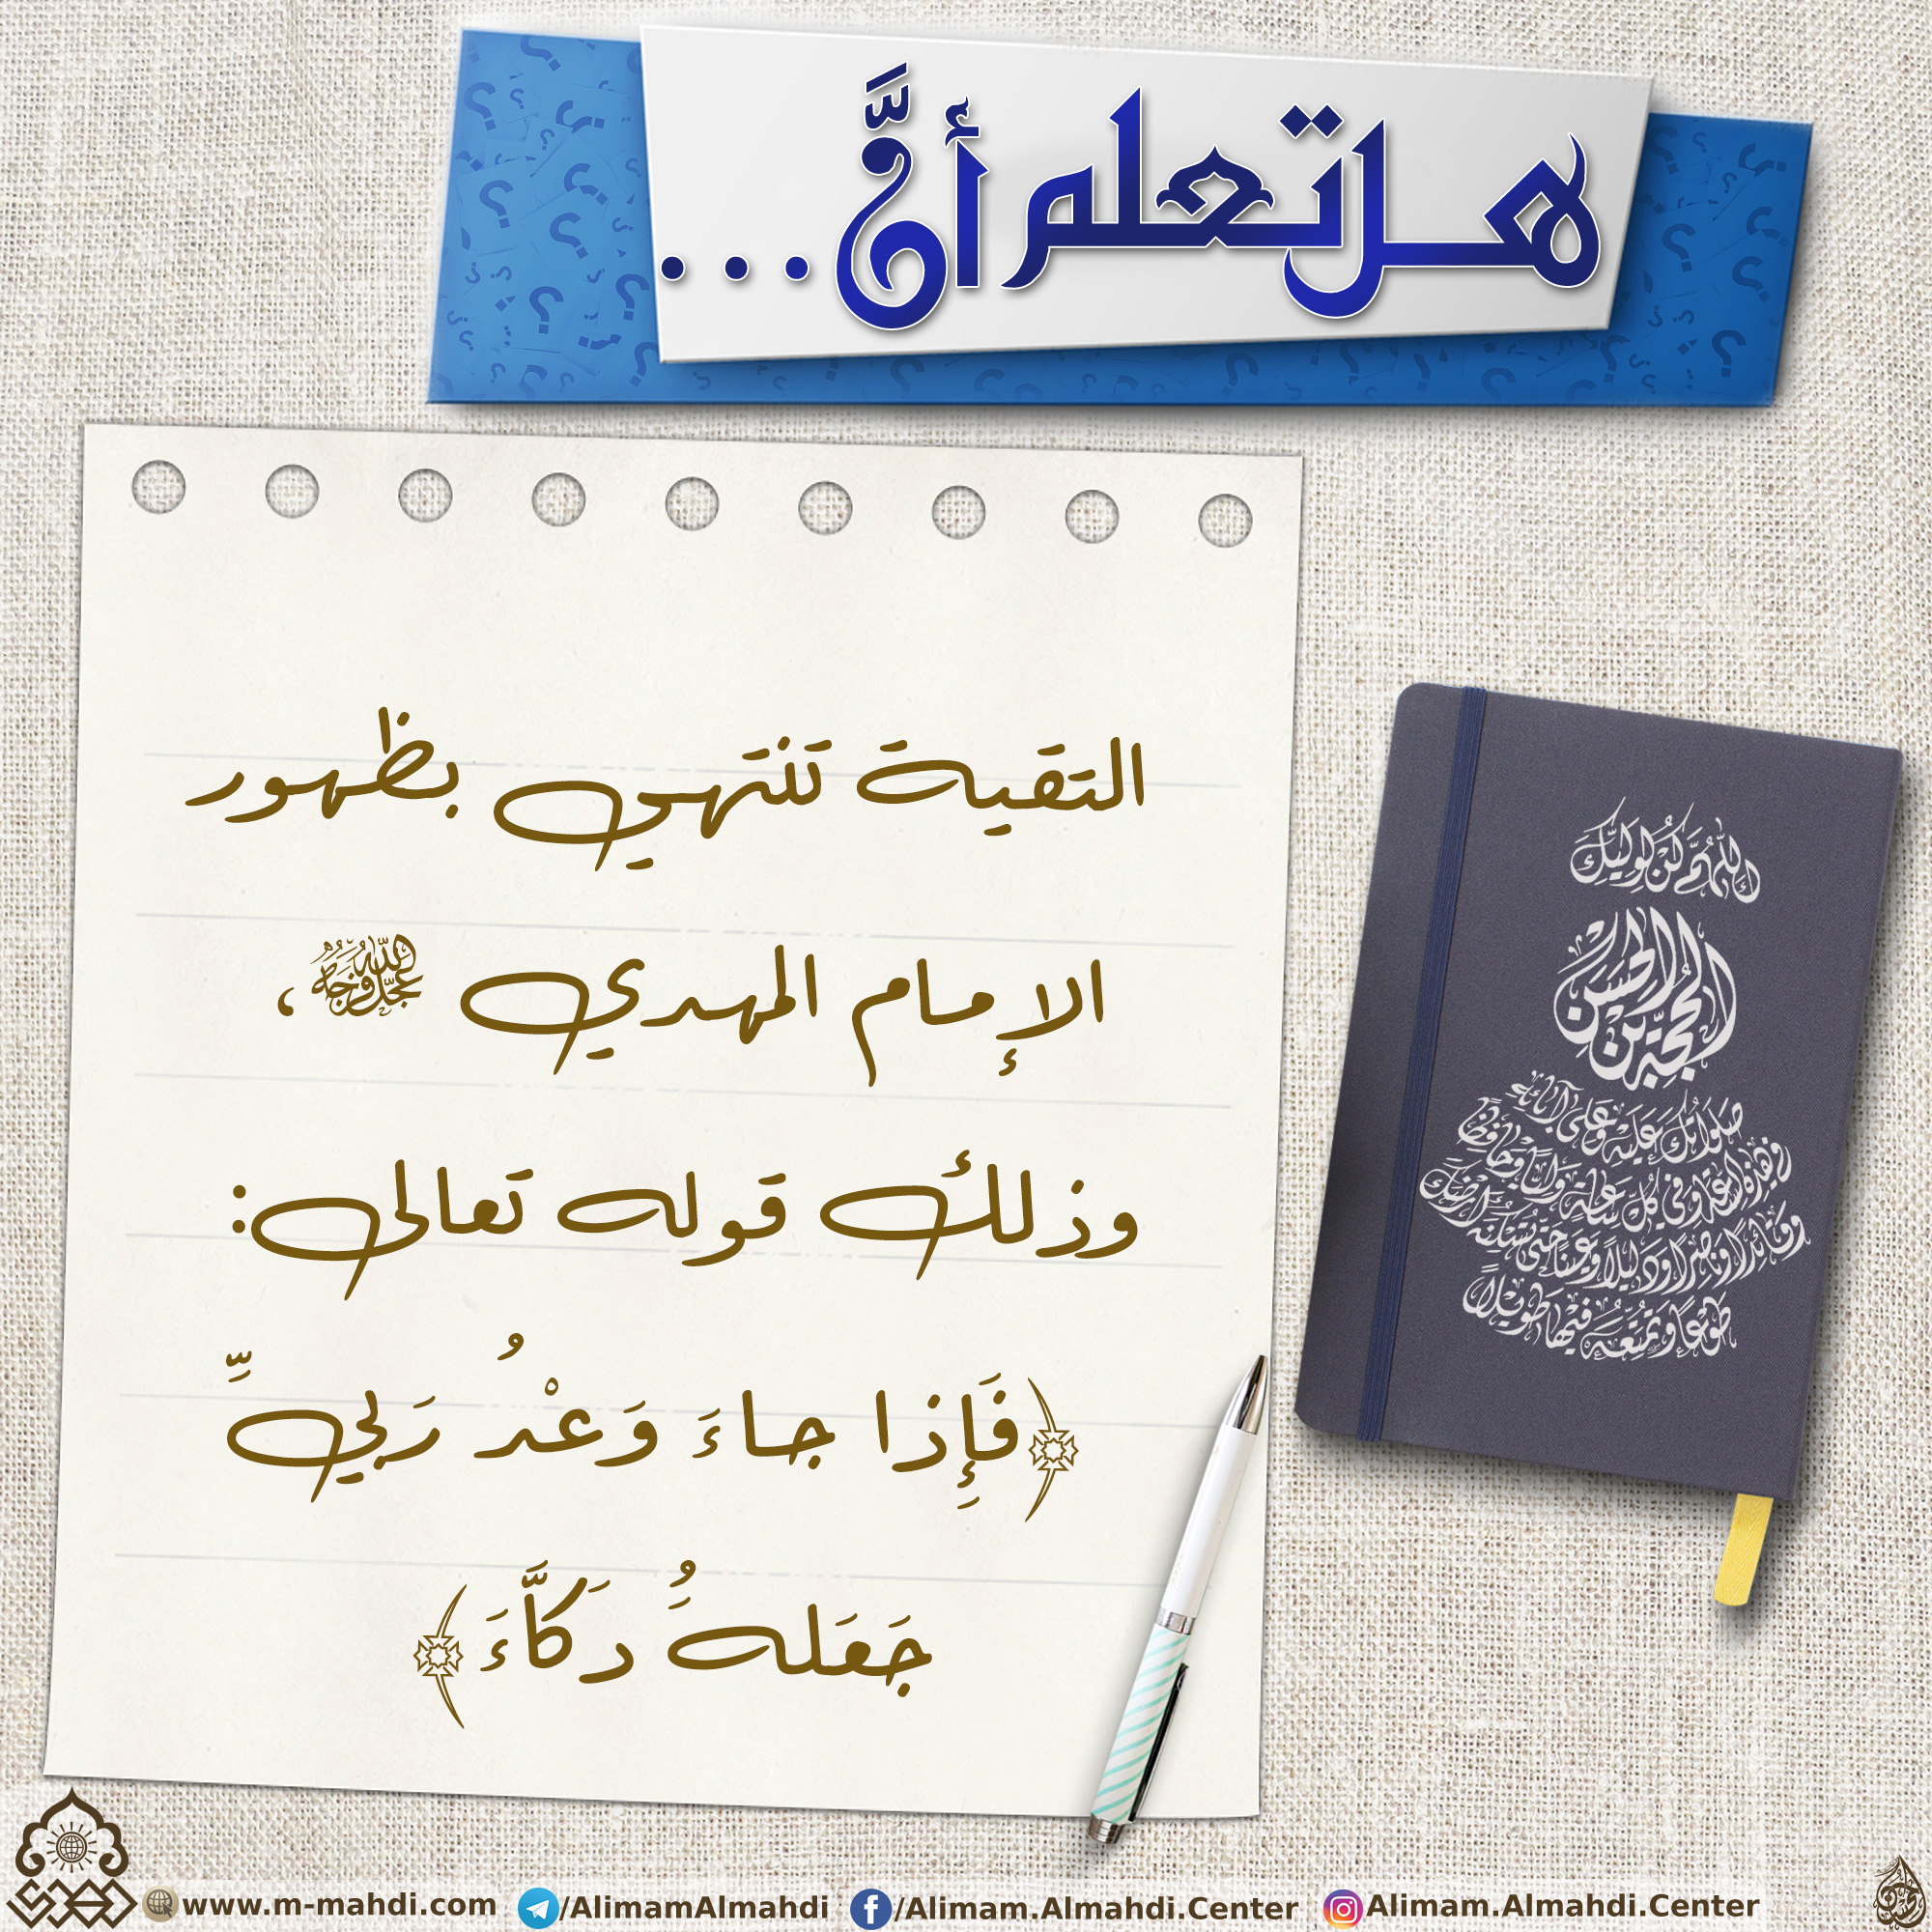 هل تعلم أنَّ...
التقية تنتهي بظهور
الإمام المهدي عجل الله فرجه،
وذلك قوله تعالى:
﴿فَإِذا جاءَ وَعْدُ رَبِّي
جَعَلَهُ دَكَّاءَ﴾
اللهُمَّ كُنْ لِوَلِيِّكَ
الحُجَّةِ بْنِ الحَسَنِ
صَلَواتُكَ عَلَيْهِ وَعَلى آبائِهِ
في هذِهِ السَّاعَةِ وَفي كُلِّ ساعَةٍ وَلِيّاً وَحافِظاً
وَقائِداً وَناصِراً وَدَليلاً وَعَيْناً حَتّى تُسْكِنَهُ أَرْضَكَ
طَوْعاً وَتُمَتِّعَهُ فيها طَويلاً
www.m-mahdi.com /AlimamAlmahdi /Alimam.Almahdi.Center Alimam.Almahdi.Center